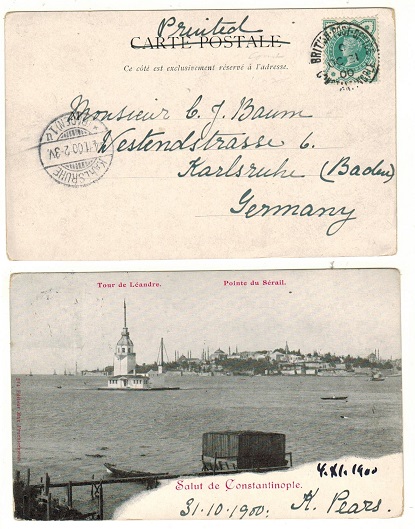 Printed
CARTE POSTALE
Ce côté est exclusivement réservé à l'adresse.
BRITISH POST OFFICE
00
Monsieur C. J. Baum
Westendstrasse 6
Karlsruhe (Baden)
Germany
KARLSRUHE
4.11.00.2-3V.
Tour de Léandre.
Pointe du Sérail.
Salut de Constantinople.
4.XI.1900
31.10.1900.
K. Pears.